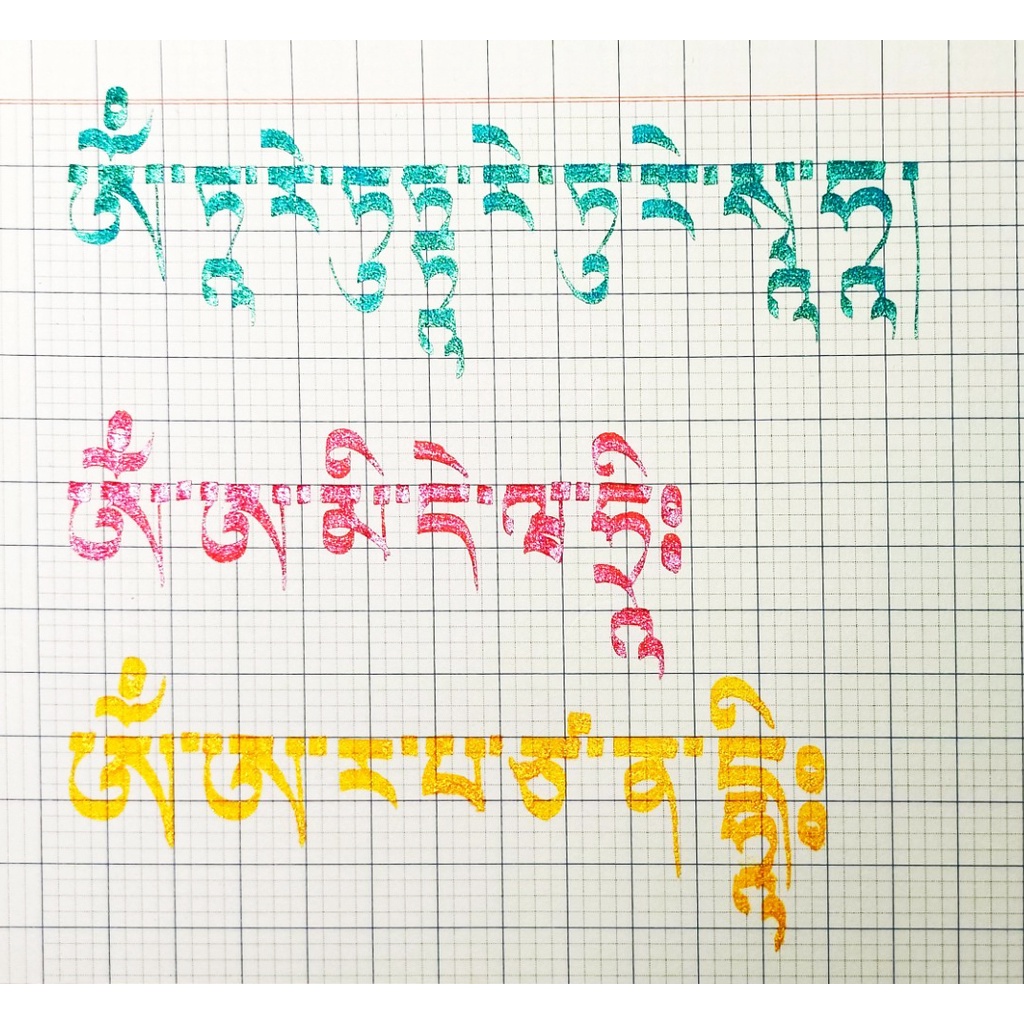 ཨོཾ་ཏཱ་རེ་ཏུ་ཏྟཱ་རེ་ཏུ་རེ་སྭཱ་ཧཱ།
ཨོཾ་ཨ་མི་དེ་ཝ་ཧྲཱིཿ
ཨོཾ་ཨ་ར་པ་ཙ་ན་དྷཱིཿ